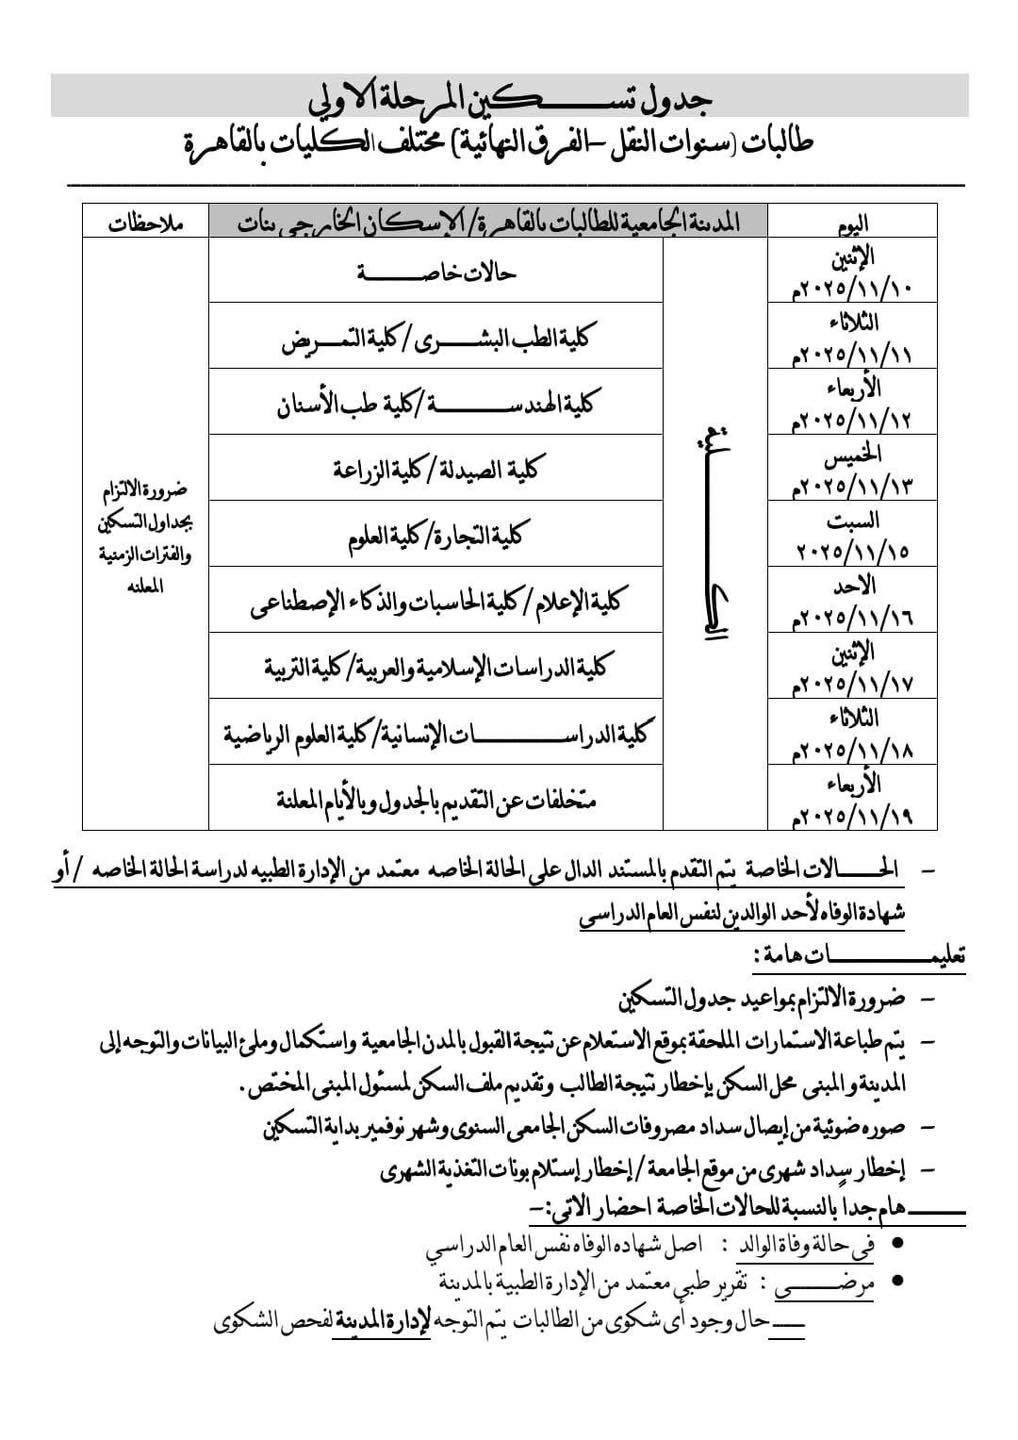 جدول تســـــكين المرحلة الاولي
طالبات (سنوات النقل –الفرق النهائية) مختلف الكليات بالقاهرة
اليوم
المدينة الجامعية للطالبات بالقاهرة/ الإسكان الخارجي بنات
ملاحظات
الكـــــــلية
الإثنين
٢٠٢٥/١١/١٠م
حالات خاصـــــــة
الثلاثاء
٢٠٢٥/١١/١١م
كلية الطب البشـــــرى /كلية التمــريض
الأربعاء
٢٠٢٥/١١/١٢م
كلية الهندســــــــــة /كلية طب الأسنان
الخميس
٢٠٢٥/١١/١٣م
كلية الصيدلة /كلية الزراعة
السبت
٢٠٢٥/١١/١٥
كلية التجارة/كلية العلوم
الاحد
٢٠٢٥/١١/١٦م
كلية الإعلام /كلية الحاسبات والذكاء الإصطناعى
الإثنين
٢٠٢٥/١١/١٧م
كلية الدراسات الإسلامية والعربية/كلية التربية
الثلاثاء
٢٠٢٥/١١/١٨م
كلية الدراســـــــــــات الإنسانية/كلية العلوم الرياضية
الأربعاء
٢٠٢٥/١١/١٩م
متخلفات عن التقديم بالجدول وبالأيام المعلنة
ضرورة الالتزام
بجداول التسكين
والفترات الزمنية
المعلنه
– الحــــــالات الخاصة يتم التقدم بالمستند الدال على الحالة الخاصه معتمد من الإدارة الطبيه لدراسة الحالة الخاصه / أو
شهادة الوفاه لأحد الوالدين لنفس العام الدراسى
تعليمــــــــــــــات هامة :
– ضرورة الالتزام بمواعيد جدول التسكين
– يتم طباعة الاستمارات الملحقة بموقع الاستعلام عن نتيجة القبول بالمدن الجامعية واستكمال وملئ البيانات والتوجه إلى
المدينة و المبنى محل السكن بإخطار نتيجة الطالب وتقديم ملف السكن لمسئول المبنى المختص .
– صوره ضوئية من إيصال سداد مصروفات السكن الجامعى السنوى وشهر نوفمبر بداية التسكين
– إخطار سداد شهرى من موقع الجامعة / إخطار إستلام بونات التغذية الشهرى
ـــــــ هام جداً بالنسبة للحالات الخاصة احضار الاتي:–
• فى حالة وفاة الوالد : اصل شهاده الوفاه نفس العام الدراسي
• مرضـــــــى : تقرير طبى معتمد من الإدارة الطبية بالمدينة
ــــــ حال وجود أى شكوى من الطالبات يتم التوجه لإدارة المدينة لفحص الشكوى